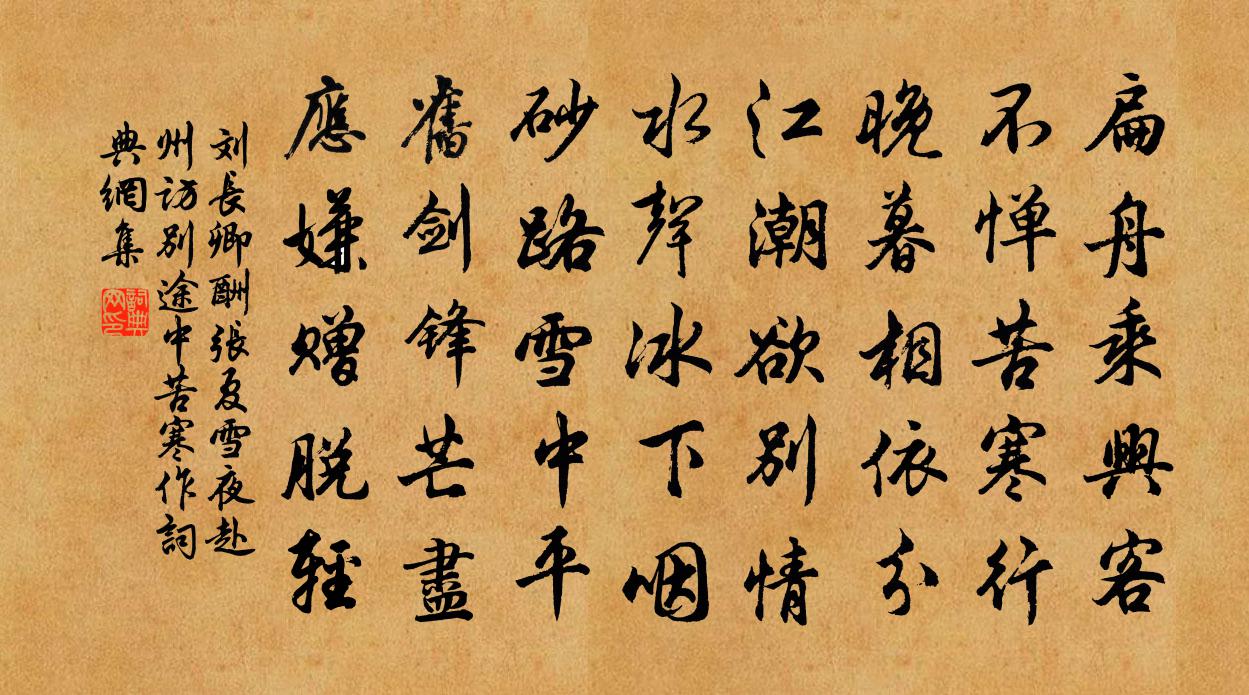 扁舟乘興客
不惮苦寒行
晚暮相依分
江潮欲別情
水聲冰下咽
砂路雪中平
舊剑锋芒盡
應嫌赠脱輕
刘長卿酬張夏雪夜赴
州访別途中苦寒作詞
典網集
詞典
网印